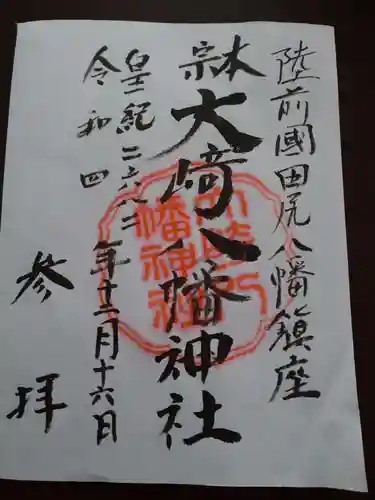 陸前國田尻八幡鎮座
本宗
大崎八幡神社
皇紀二六八二
令和四年十二月十六日
参拝